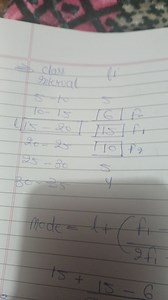 class interval fi
5 - 10 5
10 - 15 6 f0
l 15 - 20 15 f1
20 - 25 10 f2
25 - 30 5
30 - 35 4
Mode = l + ( f1 -
2f1 -
15 + 15 - 6